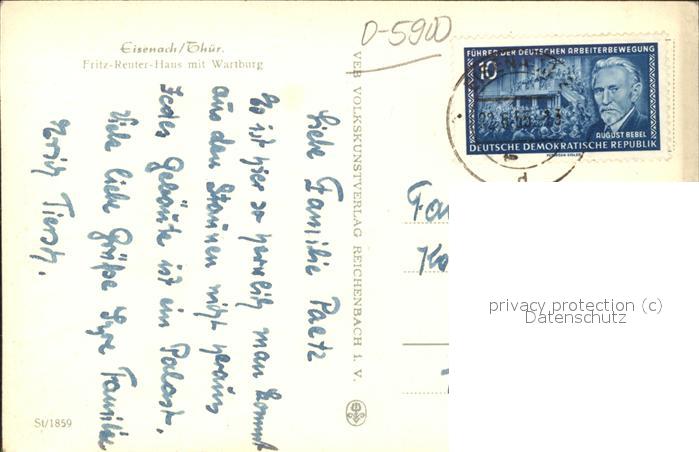 Eisenach/Thür.
Fritz-Reuter-Haus mit Wartburg
D-5900
FÜHRER DER DEUTSCHEN ARBEITERBEWEGUNG
10
AUGUST BEBEL
DEUTSCHE DEMOKRATISCHE REPUBLIK
Liebe Familie Paetz
Es ist hier so herrlich man kommt
aus dem Staunen nicht heraus
Jedes Gebäude ist ein Palast.
Viele liebe Grüße Ihre Familie
VEB VOLKSKUNSTVERLAG REICHENBACH I. V.
privacy protection (c)
Datenschutz
St/1859